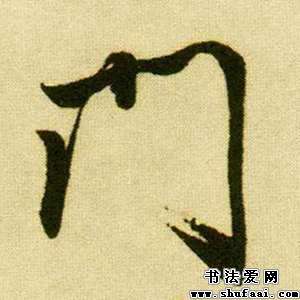 门
书法爱网
www.shufaai.com